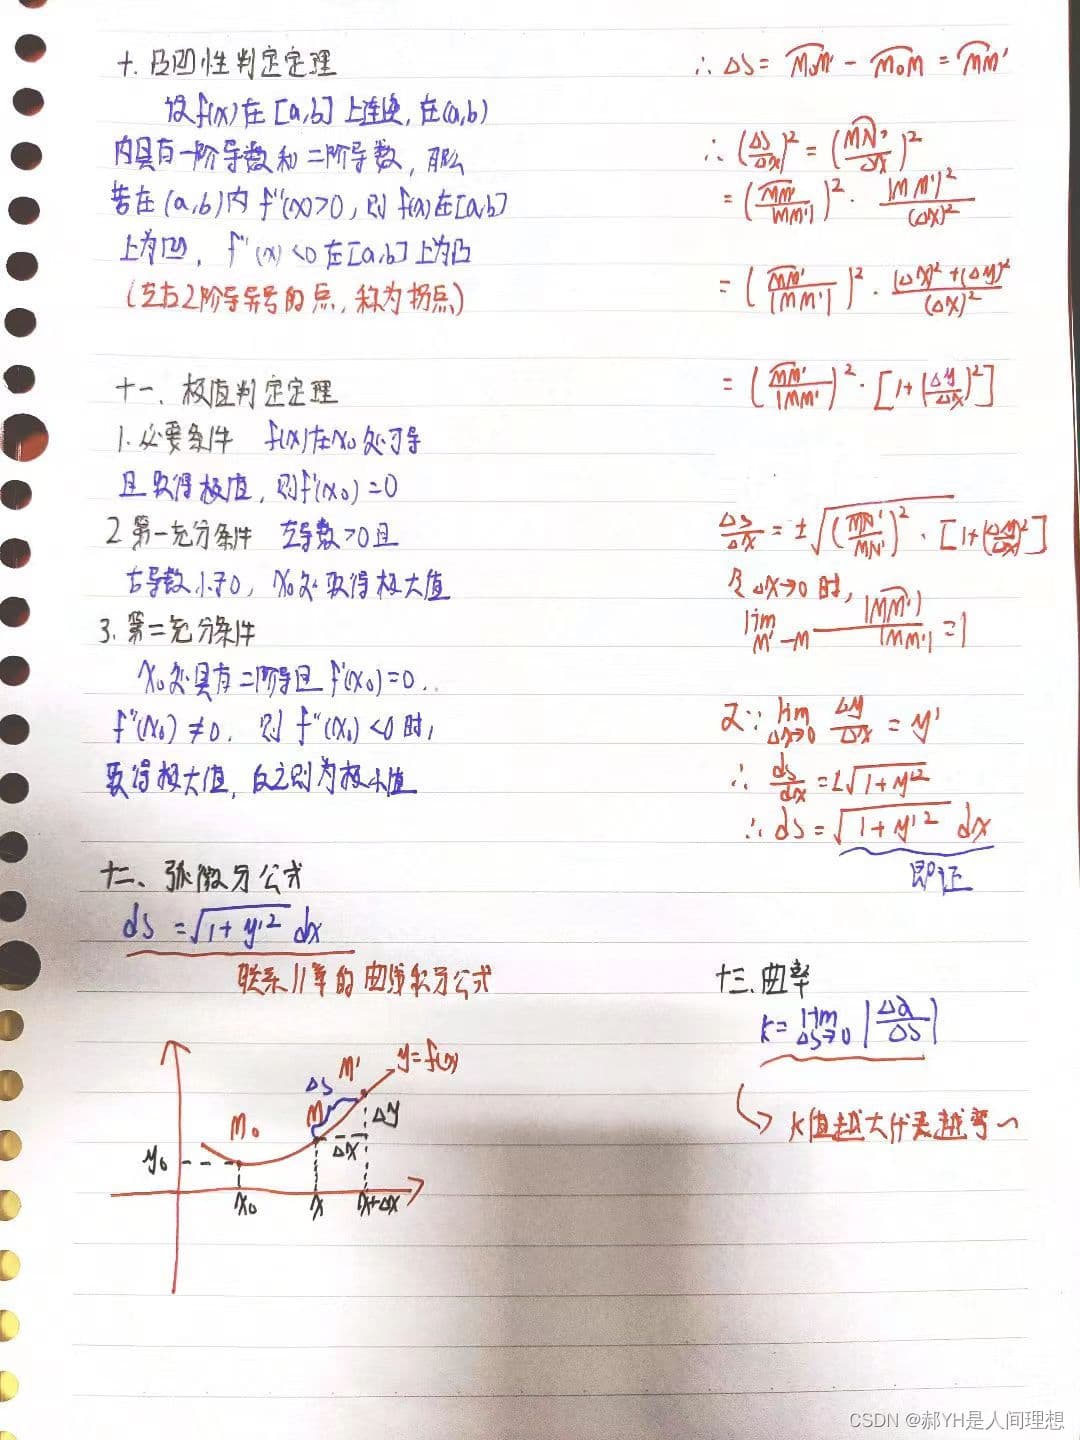 十. 凸凹性判定定理
设f(x)在[a,b]上连续,在(a,b)
内具有一阶导数和二阶导数,那么
若在(a,b)内f''(x)>0,则f(x)在[a,b]
上为凹,f''(x)<0在[a,b]上为凸
(左右2阶导异号的点,称为拐点)
十一、极值判定定理
1.必要条件 f(x)在x₀处可导
且取得极值,则f'(x₀)=0
2 第一充分条件 左导数>0且
右导数小于0,x₀处取得极大值
3.第二充分条件
x₀处具有二阶导且f'(x₀)=0.
f''(x₀)≠0. 则f''(x₀)<0时,
取得极大值,反之则为极小值
十二、弧微分公式
ds=√(1+y'²) dx
联系11章的曲线积分公式
y=f(x)
M'
Δs
M
M₀
Δy
Δx
y₀
x₀ x x+Δx
∴ΔS=M₀M'-M₀M=MM'
∴(Δs/Δx)²=(MM'/Δx)²
=(MM'/|MM'|)²·|MM'|²/(Δx)²
=(MM'/|MM'|)²·((Δx)²+(Δy)²)/(Δx)²
=(MM'/|MM'|)²·[1+(Δy/Δx)²]
Δs/Δx=±√((MM'/MM')²·[1+(Δy/Δx)²]
Δx→0时,
lim M'→M |MM'|/|MM'|=1
又∵lim Δx→0 Δy/Δx=y'
∴ds/dx=±√(1+y'²)
∴ds=√(1+y'²) dx
即证
十三.曲率
k=lim Δs→0 |Δα/Δs|
k值越大代表越弯~
CSDN @郝YH是人间理想